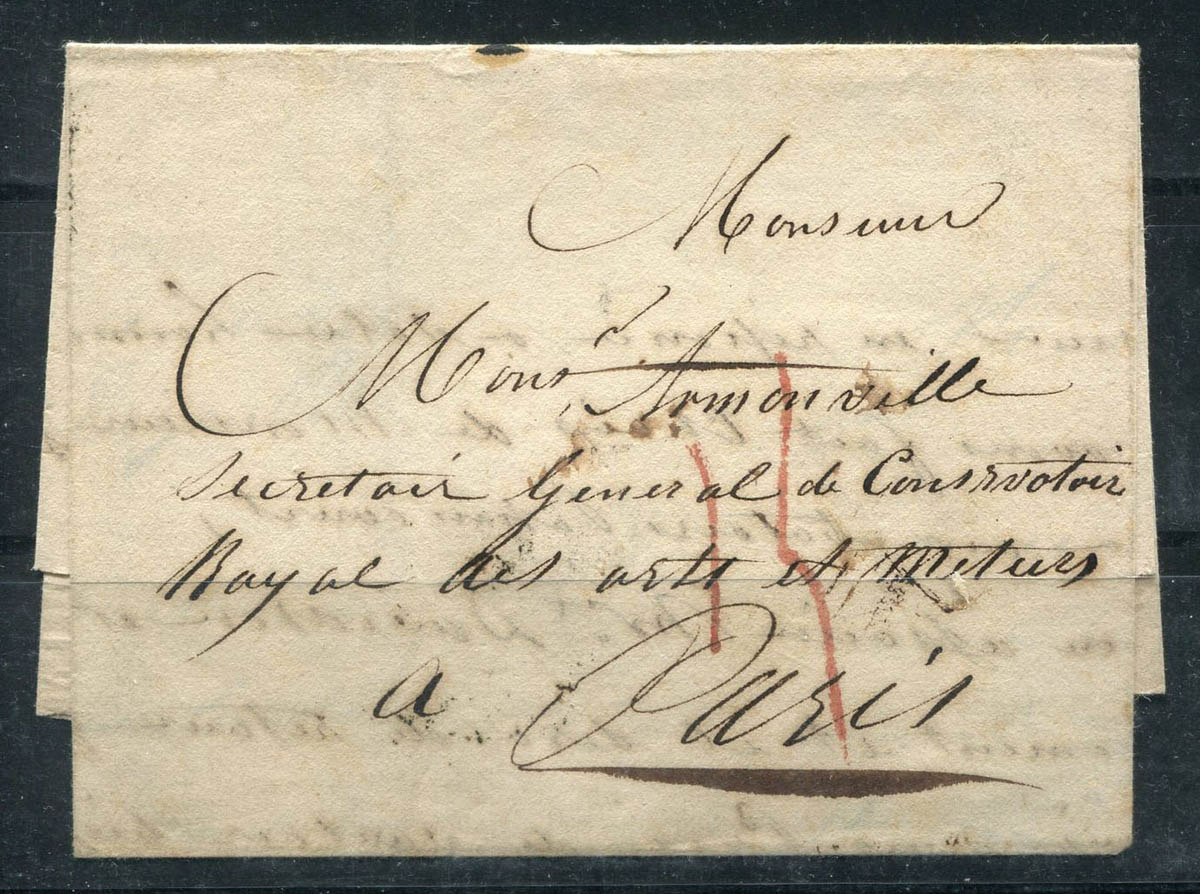 Monsieur
Monsr Armonville
Secretair General de Conservatoir
Royal des arts et Metiers
a Paris